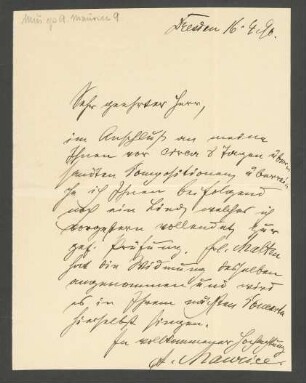 Dresden 16. 4. 90.
Sehr geehrter Herr,
im Anschluß an meine
Ihnen vor circa 8 Tagen über-
sandten Kompositionen überrei-
che ich Ihnen beifolgend
noch ein Lied, welches ich
vorgestern vollendet zur
gef. Prüfung. Frl. Malten
hat die Widmung desselben
angenommen und wird
es in Ihrem nächsten Concerte
hierselbst singen.
In vollkommener Hochachtung
A. Maurice.